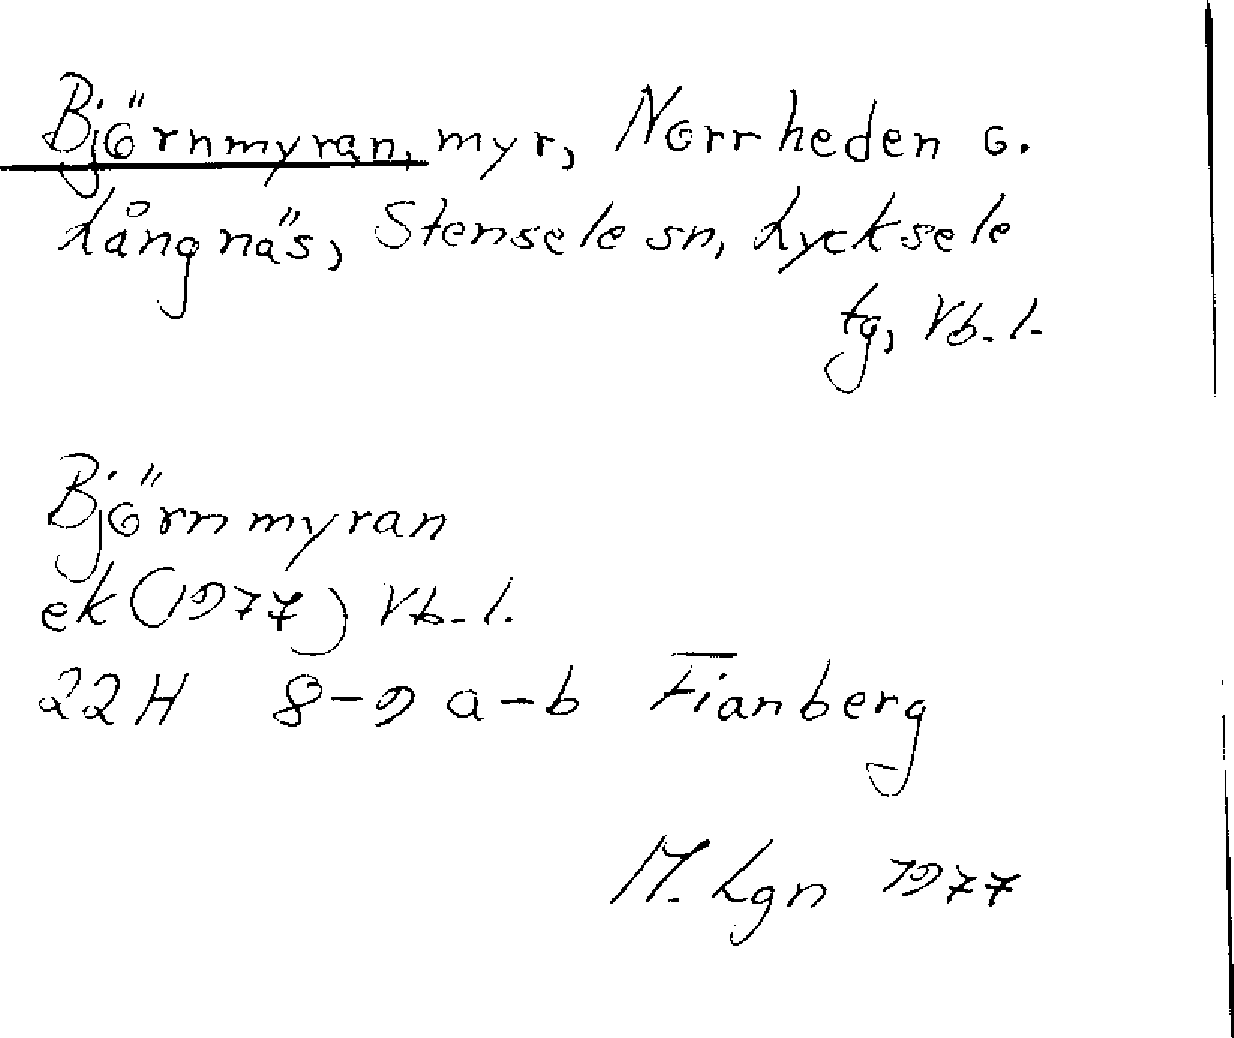 Björnmyran, myr, Norrheden o.
Långnäs, Stensele sn, Lycksele
tg, Vb. l.
Björnmyran
ek (1977) Vb. l.
22H 8-9 a-b Fianberg
M. Lgn 1977